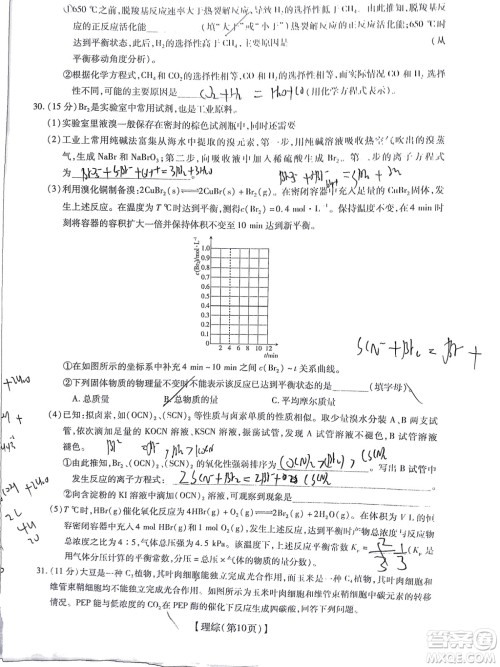 ①650℃之前,脱羧基反应速率大于热裂解反应,导致H₂的选择性高于CH₄
应的正反应活化能 (填"大于"或"小于")热裂解反应;650℃时
达到平衡状态,此时,H₂的选择性高于CH₄,可能的原因是 (从平衡
移动角度分析)。
②根据化学方程式,CH₄和CO₂的选择性相等,CO和H₂的选择性相等,而实际情况CO
的选择性略高于H₂,则可能还发生了 CO₂+H₂=H₂O+CO (用化学方程式表示)。
30. (15分)Br₂是实验室中常用试剂,也是工业原料。
(1)实验室里液溴一般保存在密封的棕色试剂瓶中,同时还需要
(2)工业上常用纯碱法富集从海水中提取的溴元素,第一步,用纯碱溶液吸收热空气吹出的溴蒸
气,生成NaBr和NaBrO₃;第二步,向吸收液中加入稀硫酸生成Br₂。第一步的离子方程式
为
(3)利用溴化铜制备溴:2CuBr₂(s)⇌2CuBr(s)+Br₂(g)。在密闭容器中充入足量的CuBr₂固体,发
生上述反应。在温度为T℃时达到平衡,测得c(Br₂)=0.4 mol·L⁻¹。保持温度不变,在4 min
时刻将容器的容积扩大一倍并保持体积不变至10 min达到新平衡。
c(Br₂)/(mol·L⁻¹)
1.0
0.8
0.6
0.4
0.2
0 2 4 6 8 10 12 t/min
SCN⁻+Br₂=Br⁻+
①在如图所示的坐标系中补充4 min~10 min之间c(Br₂)~t关系曲线。
②下列固体物质的物理量不变时不能表示该反应已达到平衡状态的是 (填字母)
A. 总质量 B. 总物质的量 C. 平均摩尔质量
(4)已知:拟卤素,如(OCN)₂、(SCN)₂等性质与卤素单质性质相似。取少量溴水分装A、B两支试
管,依次滴加足量的KOCN溶液、KSCN溶液,振荡试管,发现A试管溶液不褪色,B试管溶液
褪色。
①由此推知,Br₂、(OCN)₂、(SCN)₂的氧化性强弱排序为 。写出B试管中
发生反应的离子方程式: 。
②向含淀粉的KI溶液中滴加(OCN)₂溶液,可观察到现象是
(5)T℃时,HBr催化氧化反应为4HBr(g)+O₂(g)⇌2Br₂(g)+2H₂O(g)。在体积为V L的恒
容密闭容器中充入4 mol HBr(g)和1 mol O₂(g)发生上述反应,测得达到平衡时产物总物质的
量与反应物总物质的量之比为4:5,起始反应时总压强为a kPa,则平衡常数Kₚ=
是用气体分压计算的平衡常数,气体分压等于气体总压×物质的量分数)。
31. (11分)大豆是一种C₃植物,其叶肉细胞能独立完成光合作用,而玉米是一种C₄植物,其叶肉细胞和
维管束鞘细胞共同完成光合作用。如图表示玉米的叶肉细胞和维管束鞘细胞中碳元素的转移
情况。PEP能与低浓度的CO₂在PEP酶的催化下反应生成四碳酸。回答下列问题。
【理综(第10页)】